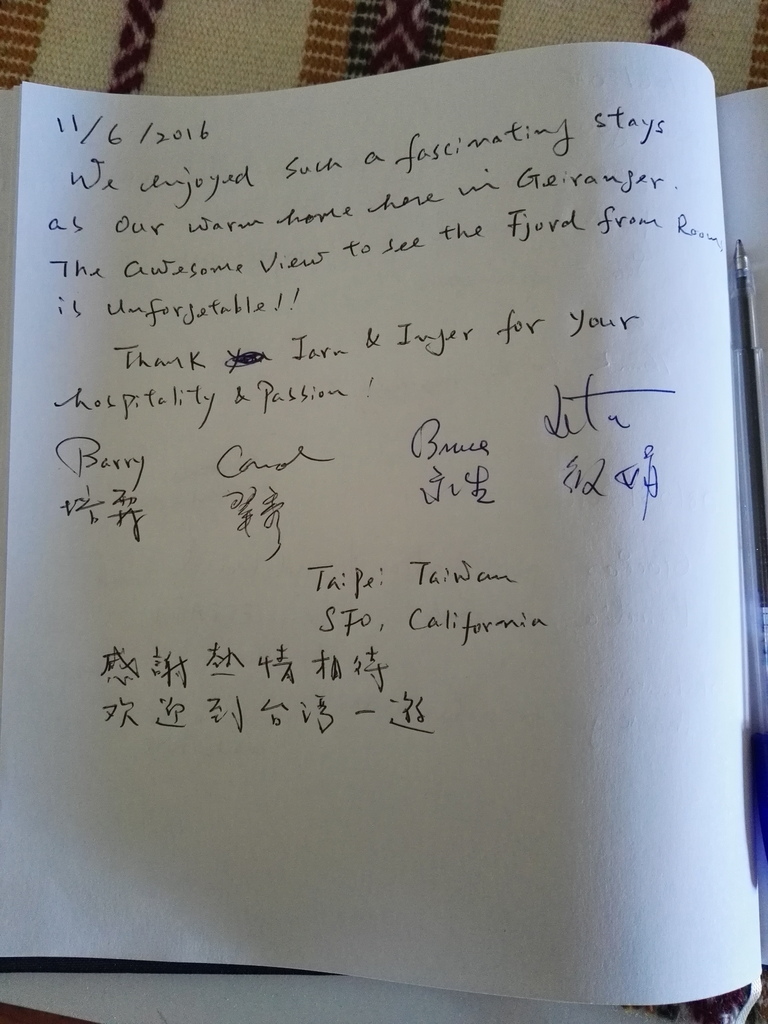 11/6/2016
We enjoyed such a fascinating stays
as our warm home here in Geiranger.
The awesome view to see the Fjord from Room
is unforgetable!!
Thank Iarn & Inger for your
hospitality & Passion!
Barry Carol Bruce
培霖 翠秀
Taipei Taiwan
SFO, California
感謝熱情相待
欢迎到台湾一遊